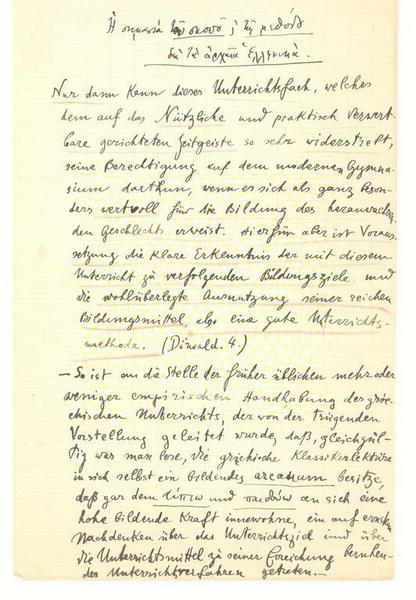 Ἡ σημασία τοῦ σκοποῦ & τῆς μεθόδ.
διὰ τὰ ἀρχαῖα Ἑλληνικά.
Nur dann kann dieses Unterrichtsfach, welches
dem auf das Nützliche und praktisch Verwert-
bare gerichteten Zeitgeiste so sehr widerstrebt,
seine Berechtigung auf dem modernen Gymna-
sium darthun, wenn es sich als ganz beson-
ders wertvoll für die Bildung des heranwachsen-
den Geschlechts erweist. Hierfür aber ist Voraus-
setzung die klare Erkenntnis der mit diesem
Unterricht zu verfolgenden Bildungsziele und
die wohlüberlegte Ausnutzung seiner reichen
Bildungsmittel, also eine gute Unterrichts-
methode. ( 4.)
– So ist an die Stelle der früher üblichen mehr oder
weniger empirischen Handhabung des grie-
chischen Unterrichts, der von der trügenden
Vorstellung geleitet wurde, daß, gleichgül-
tig was man lese, die griechische Klassikerlektüre
in sich selbst ein bildendes arcanum besitze,
daß gar dem τύπτω und παιδεύω an sich eine
hohe bildende Kraft innewohne, ein auf ernsten
Nachdenken über das Unterrichtsziel und über
die Unterrichtsmittel zu seiner Erreichung beruhen-
des Unterrichtsverfahren getreten. –